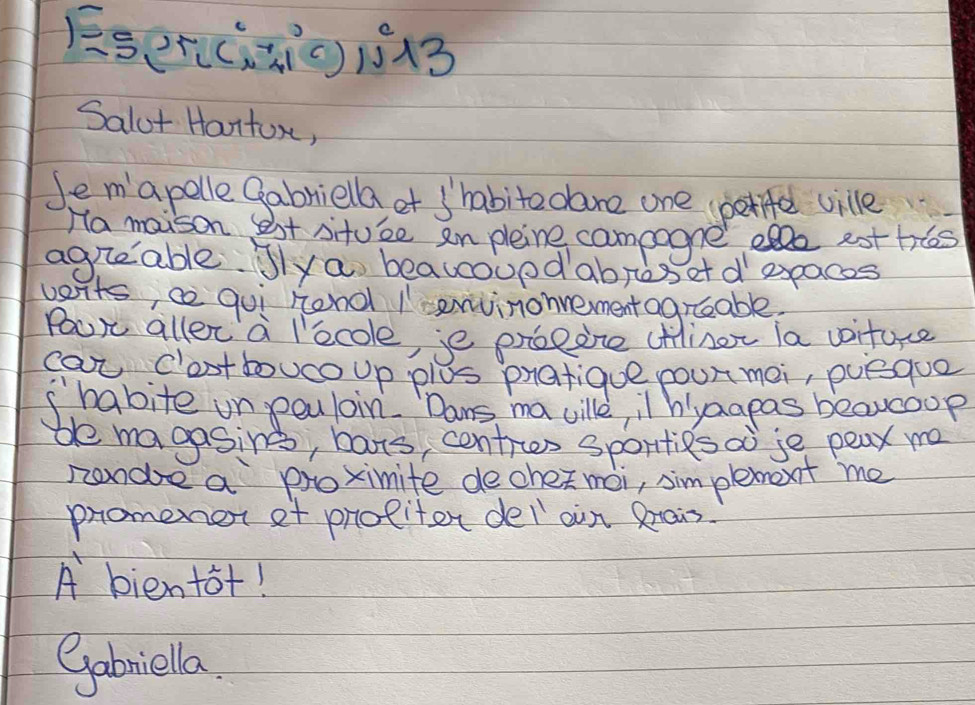 Esercizio n°13
Salut Hartur,
Je m'apelle Gabriella et j'habite dans une petite ville
Ma maison est située en pleine campagne est très
agréable. Il y a beaucoup d'abres et d'espaces
verts, ce qui rend l'environnement agréable.
Pour aller à l'école, je préfère utiliser la voiture
car c'est boucoup plus pratique pour moi, puisque
j'habite un peu loin. Dans ma ville, il n'y a a pas beaucoup
de magasins, bars, centres sportifs où je peux me
rendre à proximite de chez moi, simplement me
promener et profiter de l'air frais.
À bientôt!
Gabriella.